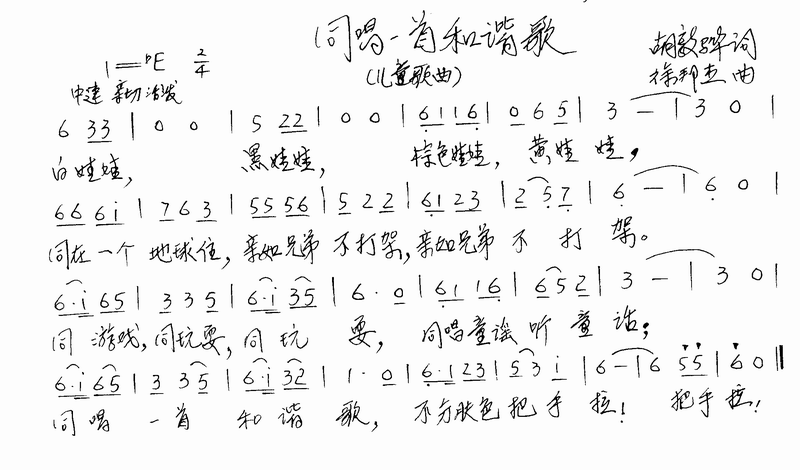 同唱一首和谐歌
1=♭E 2/4 (儿童歌曲) 胡敦骅词
中速 亲切活泼 徐邦杰曲
6 33 | 0 0 | 5 22 | 0 0 | 6116 | 0 6 5 | 3 — | 3 0 |
白娃娃, 黑娃娃, 棕色娃娃, 黄娃娃,
66 6i | 7 6 3 | 55 56 | 5 2 2 | 61 23 | 2 5 7 | 6 — | 6 0 |
同在一个地球住, 亲如兄弟不打架, 亲如兄弟不打架。
6·i 65 | 3 3 5 | 6·i 35 | 6· 0 | 61 16 | 6 5 2 | 3 — | 3 0 |
同游戏, 同玩耍, 同玩耍, 同唱童谣听童话;
6·i 65 | 3 3 5 | 6·i 32 | 1· 0 | 6·1 23 | 5 3 i | 6 — | 6 55 | 6 0 ‖
同唱一首和谐歌, 不分肤色把手拉! 把手拉!